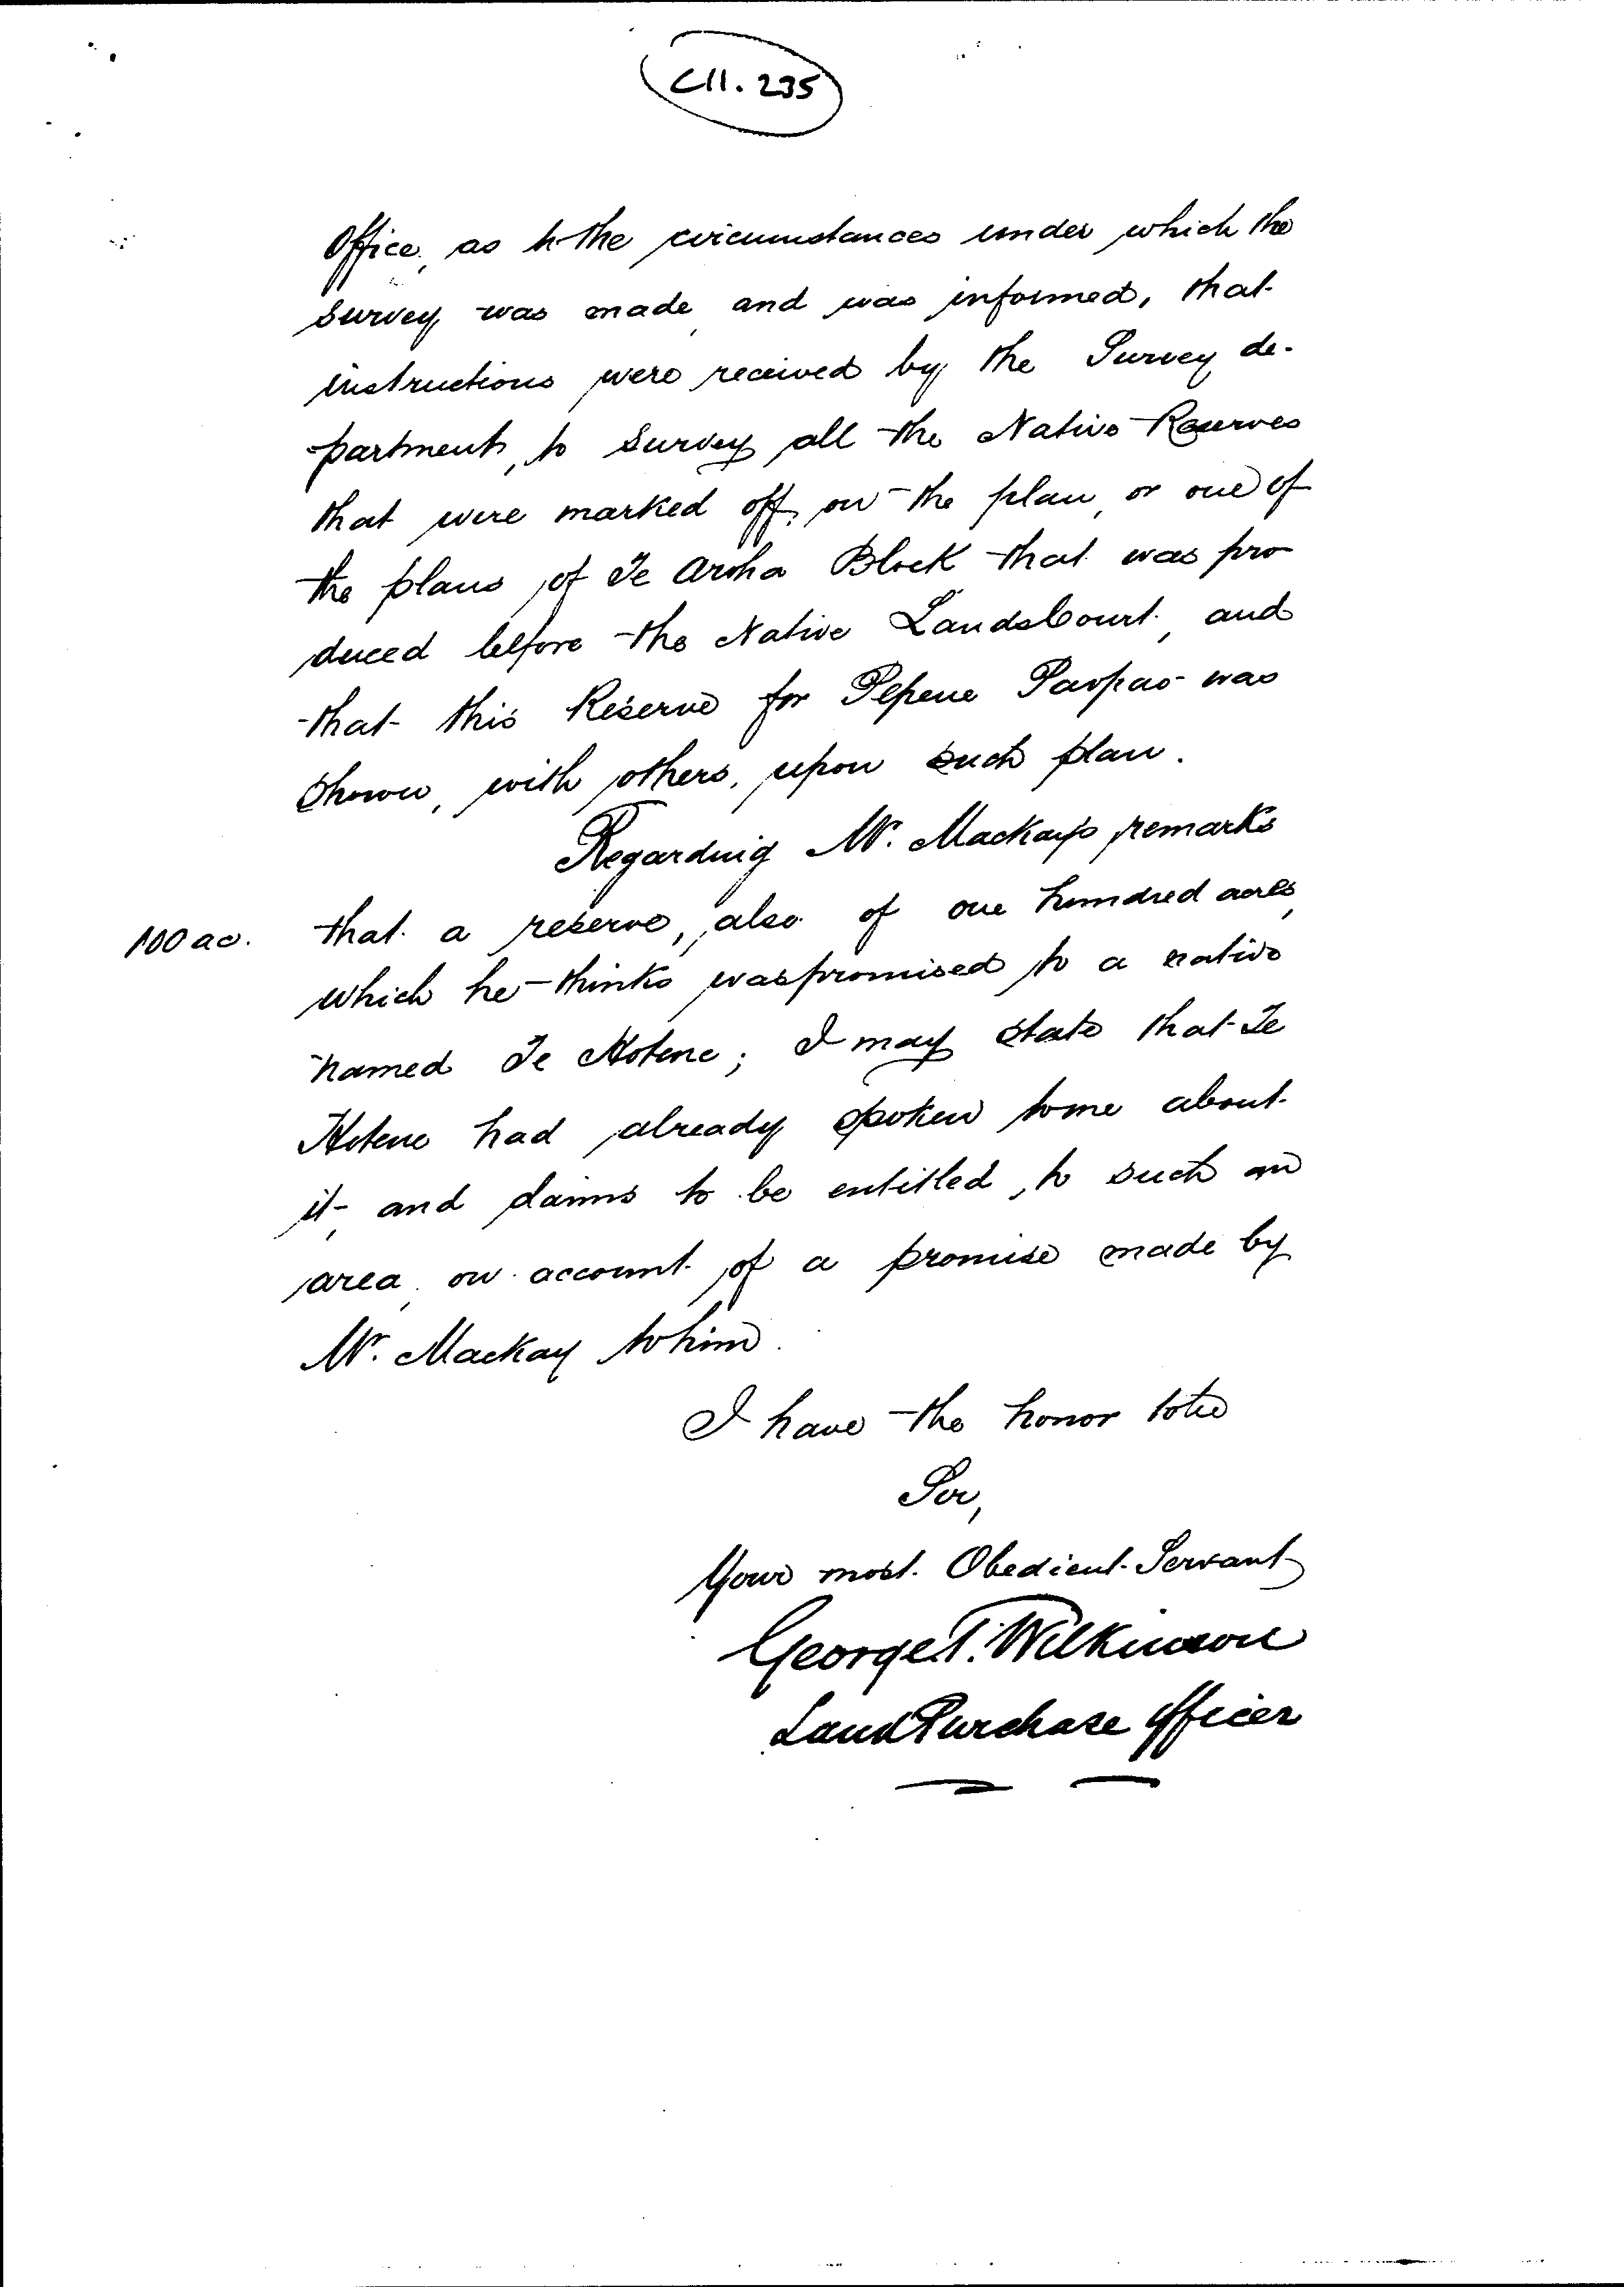 C11.235
Office, as to the circumstances under which the
survey was made, and was informed, that
instructions were received by the Survey de-
partment, to survey all the Native Reserves
that were marked off, on the plan, or one of
the plans of Te Aroha Block that was pro
duced before the Native Lands Court, and
that this Reserve for Pepene Paopao was
shown, with others, upon such plan.
Regarding Mr. Mackay's remarks
100 ac. that a reserve, also of one hundred acres,
which he thinks was promised to a native
named Te Hotene; I may state that Te
Hotene had already spoken to me about
it, and claims to be entitled, to such an
area, on account of a promise made by
Mr. Mackay to him.
I have the honor to be
Sir,
Your most Obedient Servant
George T. Wilkinson
Land Purchase Officer